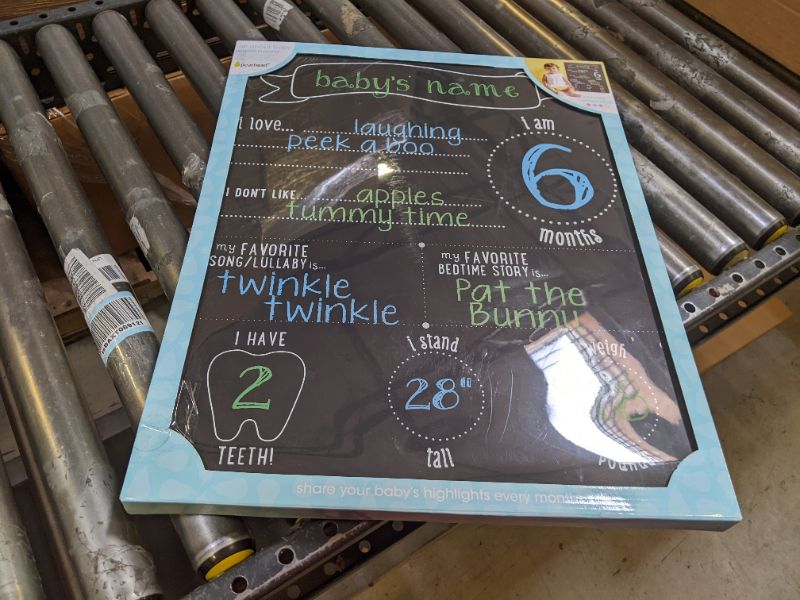 pearhead
baby's name
i love... laughing
peek a boo
i am
6
months
I DON'T LIKE... apples
tummy time
my FAVORITE
SONG/LULLABY is...
twinkle
twinkle
my FAVORITE
BEDTIME STORY is...
Pat the
Bunny
I HAVE
2
TEETH!
i stand
28"
tall
weigh
pounds
share your baby's highlights every month